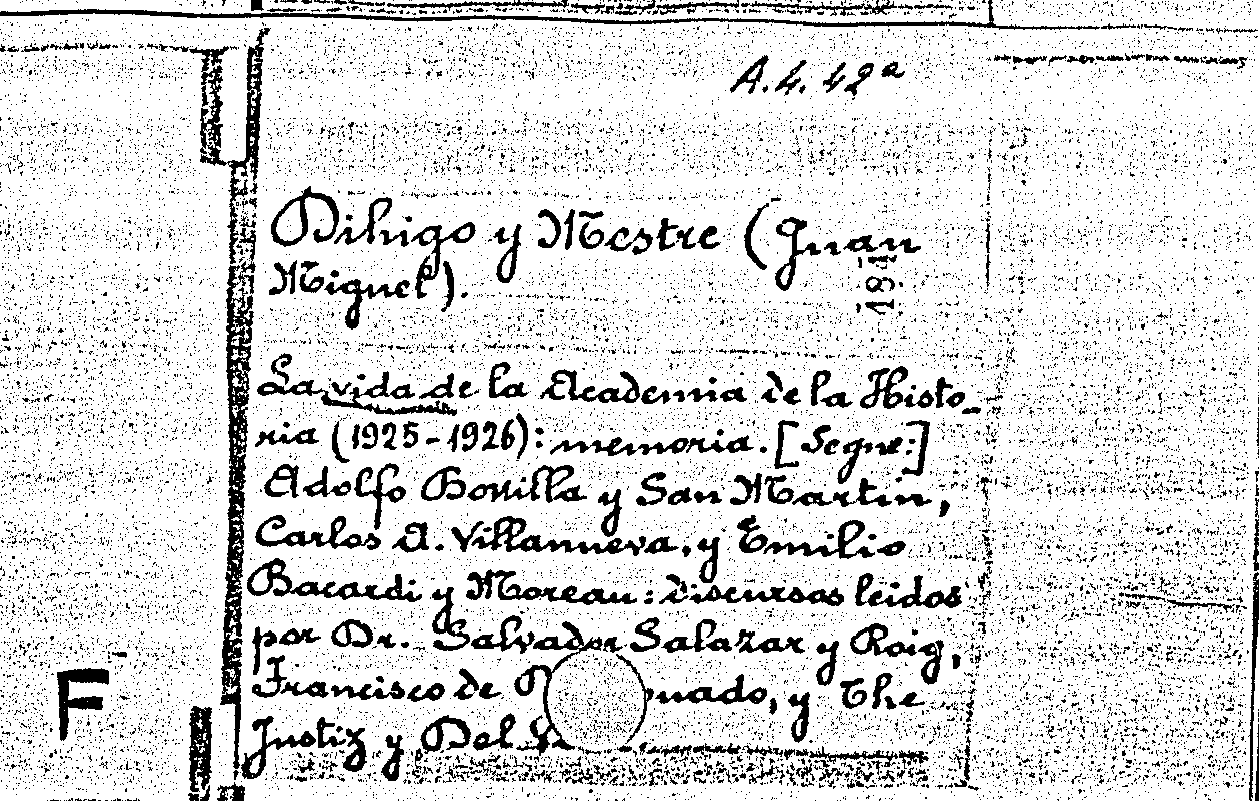 A.4.42ª
Dihigo y Mestre (Juan
Miguel).
La vida de la Academia de la Histo-
ria (1925-1926): memoria. [Segue:]
Adolfo Bonilla y San Martin,
Carlos A. Villanueva, y Emilio
Bacardi y Moreau: discursos leidos
por Dr. Salvador Salazar y Roig,
Francisco de y The
Justiz y Del
F